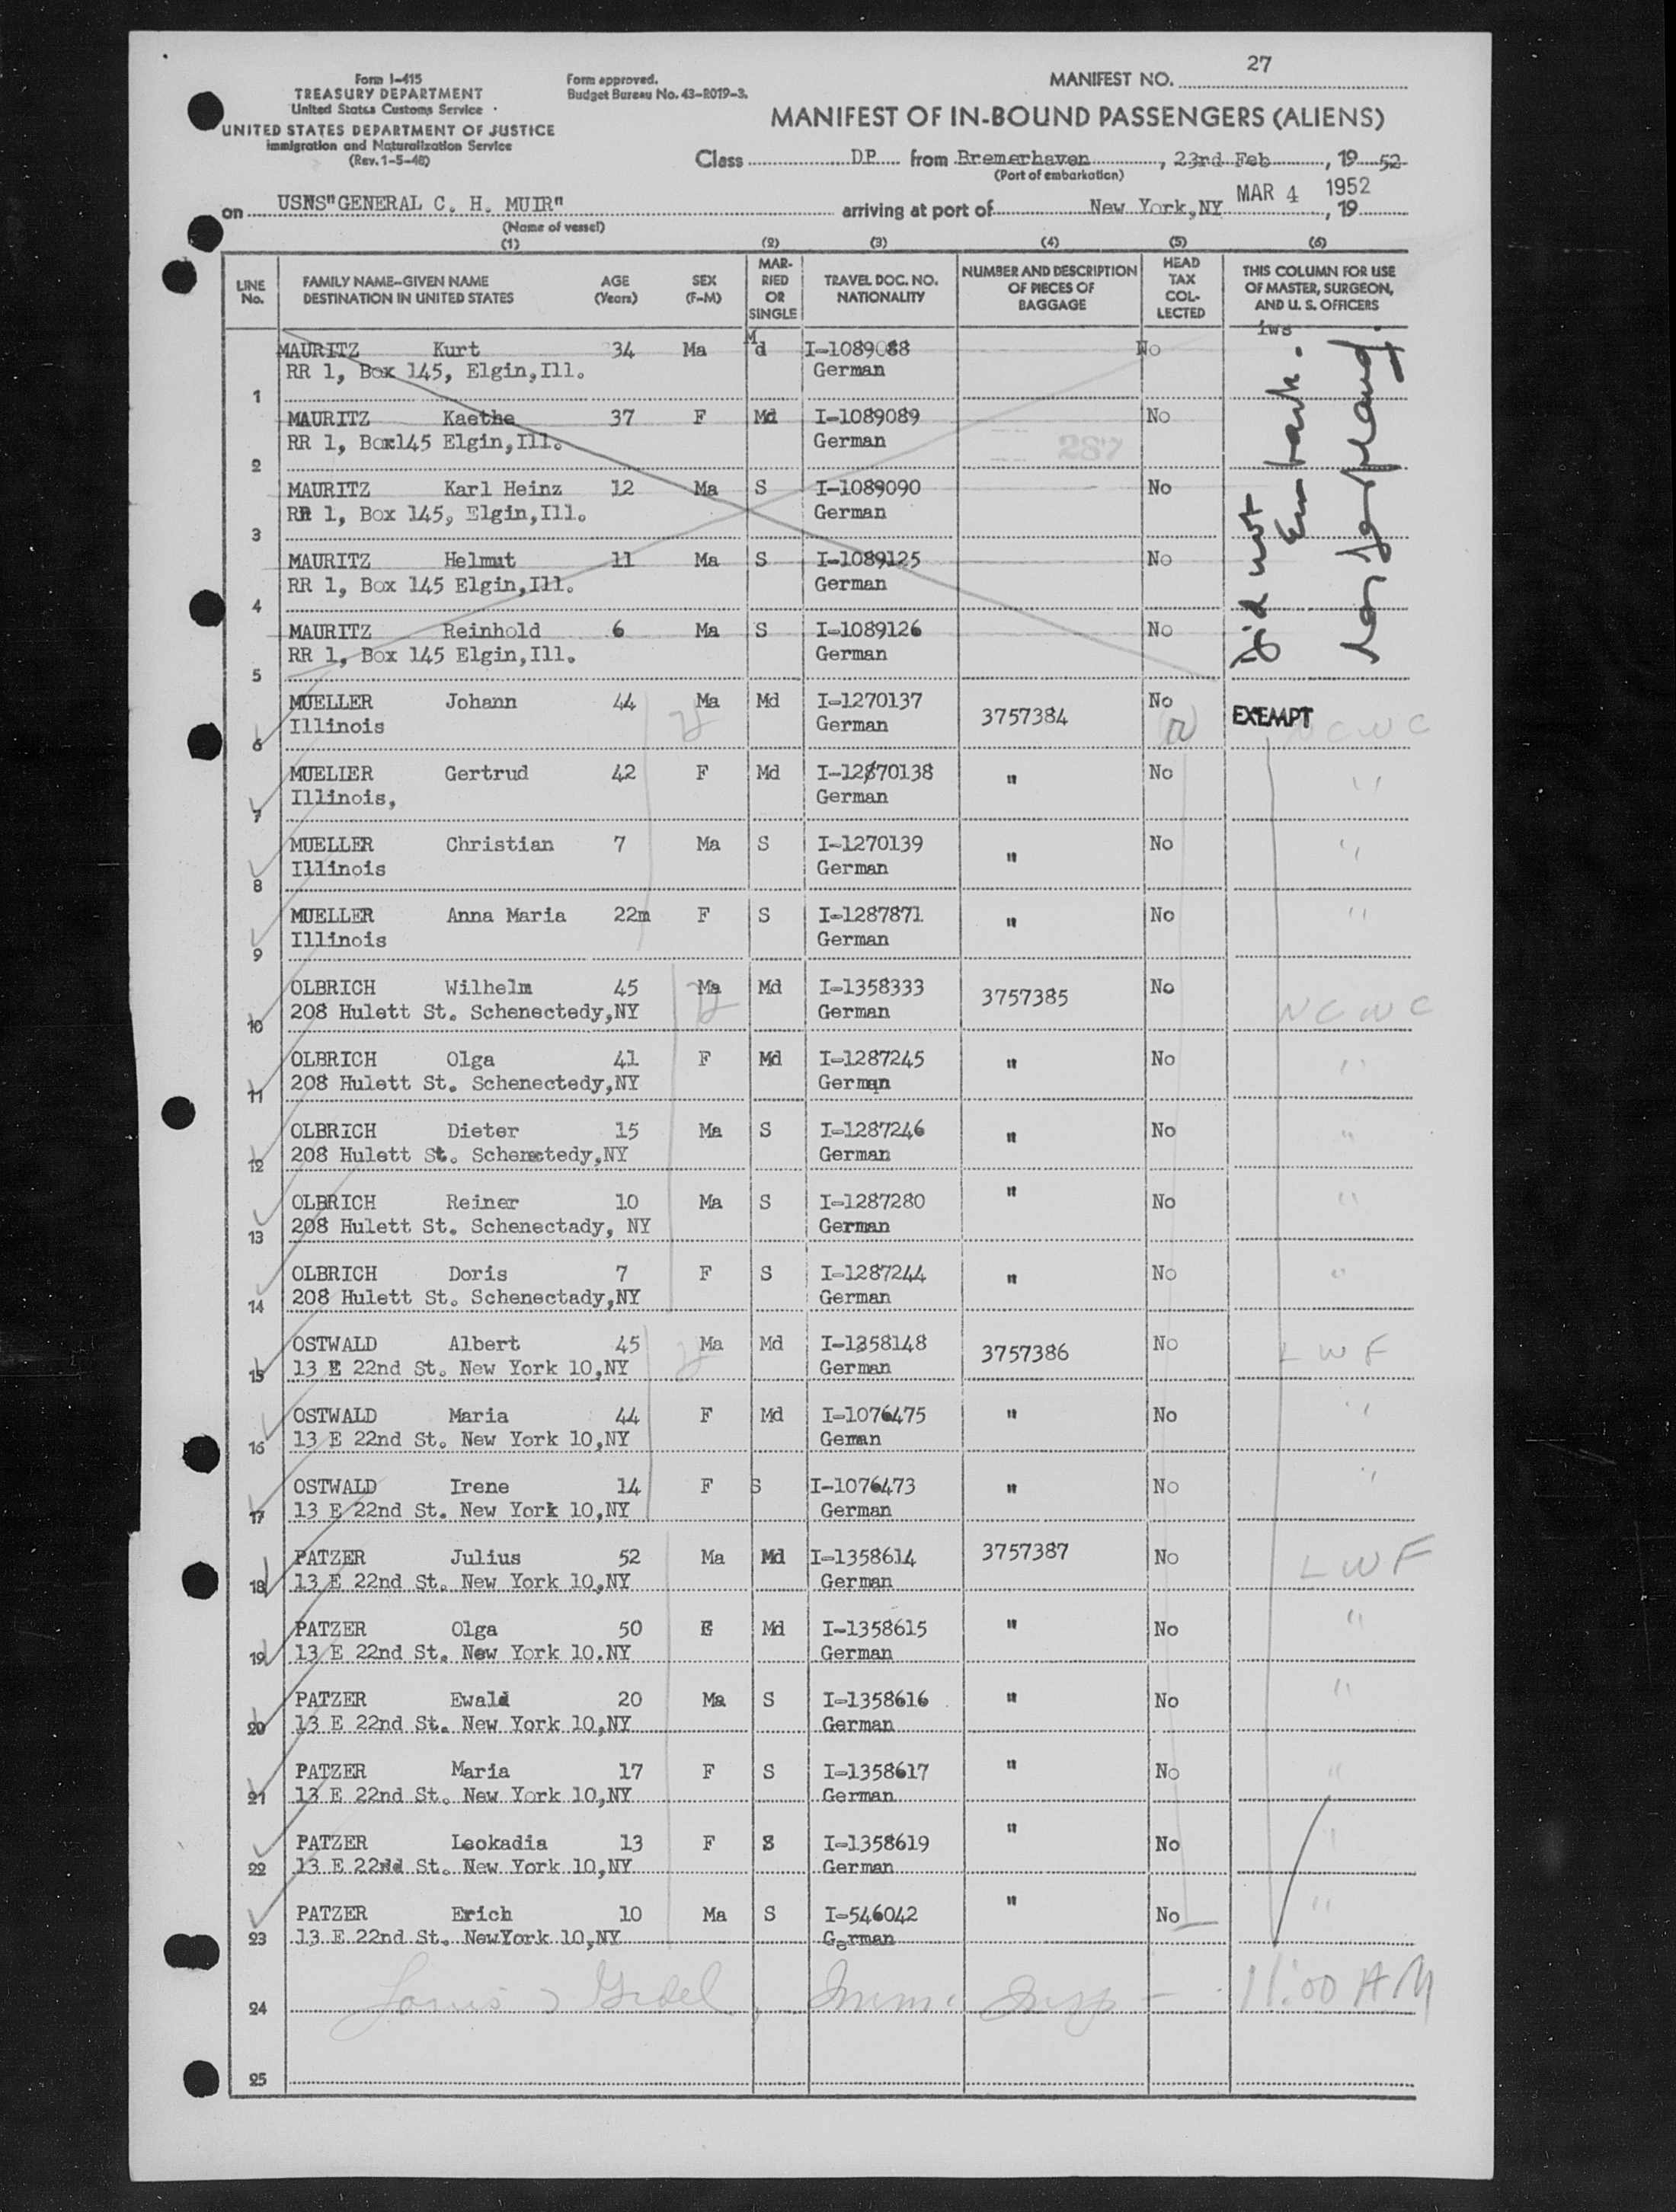 27
Form I-415
TREASURY DEPARTMENT
United States Customs Service
UNITED STATES DEPARTMENT OF JUSTICE
Immigration and Naturalization Service
(Rev. 1-5-48)
Form approved.
Budget Bureau No. 43-R019-3.
MANIFEST NO.
MANIFEST OF IN-BOUND PASSENGERS (ALIENS)
Class DP from Bremerhaven, 23rd Feb, 19 52
(Port of embarkation)
on USNS"GENERAL C. H. MUIR" arriving at port of New York,NY MAR 4 1952, 19
(Name of vessel)
(1) (2) (3) (4) (5) (6)
LINE No. FAMILY NAME-GIVEN NAME DESTINATION IN UNITED STATES AGE (Years) SEX (F-M) MARRIED OR SINGLE TRAVEL DOC. NO. NATIONALITY NUMBER AND DESCRIPTION OF PIECES OF BAGGAGE HEAD TAX COLLECTED THIS COLUMN FOR USE OF MASTER, SURGEON, AND U. S. OFFICERS
lws
MAURITZ Kurt 34 Ma Md I-1089088 No
RR 1, Box 145, Elgin,Ill. German
1
MAURITZ Kaethe 37 F Md I-1089089 No
RR 1, Box145 Elgin,Ill. German
287
2
MAURITZ Karl Heinz 12 Ma S I-1089090 No
RR 1, Box 145, Elgin,Ill. German
3
MAURITZ Helmut 11 Ma S I-1089125 No
RR 1, Box 145 Elgin,Ill. German
4
MAURITZ Reinhold 6 Ma S I-1089126 No
RR 1, Box 145 Elgin,Ill. German
5
Did not
Embark.
MUELLER Johann 44 Ma Md I-1270137 3757384 No EXEMPT NCWC
6 Illinois German
MUELIER Gertrud 42 F Md I-12870138 " No "
7 Illinois, German
MUELLER Christian 7 Ma S I-1270139 " No "
8 Illinois German
MUELLER Anna Maria 22m F S I-1287871 " No "
9 Illinois German
OLBRICH Wilhelm 45 Ma Md I-1358333 3757385 No NCWC
10 208 Hulett St. Schenectedy,NY German
OLBRICH Olga 41 F Md I-1287245 " No "
11 208 Hulett St. Schenectedy,NY German
OLBRICH Dieter 15 Ma S I-1287246 " No "
12 208 Hulett St. Schenectedy,NY German
OLBRICH Reiner 10 Ma S I-1287280 " No "
13 208 Hulett St. Schenectady, NY German
OLBRICH Doris 7 F S I-1287244 " No "
14 208 Hulett St. Schenectady,NY German
OSTWALD Albert 45 Ma Md I-1358148 3757386 No LWF
15 13 E 22nd St. New York 10,NY German
OSTWALD Maria 44 F Md I-1076475 " No "
16 13 E 22nd St. New York 10,NY Geman
OSTWALD Irene 14 F S I-1076473 " No "
17 13 E 22nd St. New York 10,NY German
PATZER Julius 52 Ma Md I-1358614 3757387 No LWF
18 13 E 22nd St. New York 10,NY German
PATZER Olga 50 F Md I-1358615 " No "
19 13 E 22nd St. New York 10.NY German
PATZER Ewald 20 Ma S I-1358616 " No "
20 13 E 22nd St. New York 10,NY German
PATZER Maria 17 F S I-1358617 " No "
21 13 E 22nd St. New York 10,NY German
PATZER Leokadia 13 F S I-1358619 " No "
22 13 E 22nd St. New York 10,NY German
PATZER Erich 10 Ma S I-546042 " No "
23 13 E 22nd St. NewYork 10,NY German
24 Imm. Insp - 11:00 AM
25